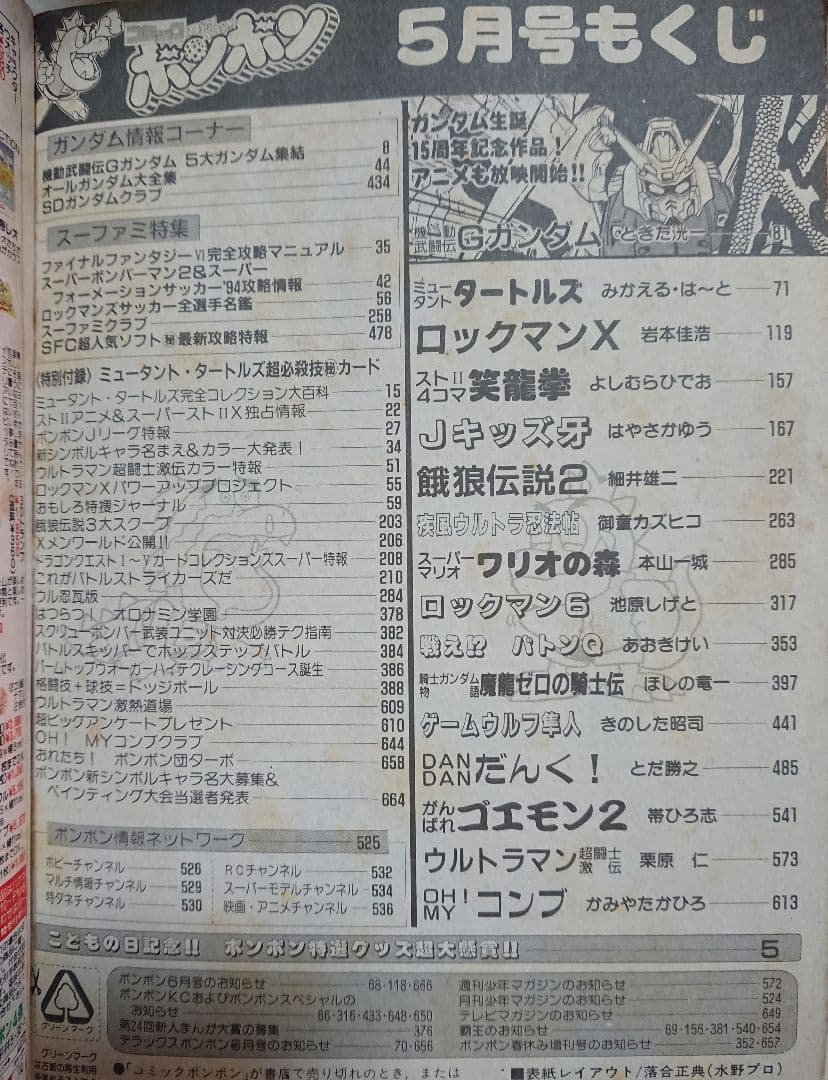 コミック
ボンボン
5月号もくじ
ガンダム情報コーナー
機動武闘伝Gガンダム 5大ガンダム集結 8
オールガンダム大全集 44
SDガンダムクラブ 434
スーファミ特集
ファイナルファンタジーⅥ完全攻略マニュアル 35
スーパーボンバーマン2&スーパー
フォーメーションサッカー'94攻略情報 42
ロックマンズサッカー全選手名鑑 56
スーファミクラブ 258
SFC超人気ソフト㊙最新攻略特報 478
〈特別付録〉ミュータント・タートルズ超必殺技㊙カード
ミュータント・タートルズ完全コレクション大百科 15
ストⅡアニメ&スーパーストⅡX独占情報 22
ボンボンJリーグ特報 27
新シンボルキャラ名まえ&カラー大発表! 34
ウルトラマン超闘士激伝カラー特報 51
ロックマンXパワーアッププロジェクト 55
おもしろ特捜ジャーナル 59
餓狼伝説3大スクープ 203
Xメンワールド公開!! 206
ドラゴンクエストⅠ~Ⅴカードコレクションズスーパー特報 208
これがバトルストライカーズだ 210
ウル忍瓦版 284
はつらつ! オロナミン学園 378
スクリューボンバー武装ユニット対決必勝テク指南 382
バトルスキッパーでホップステップバトル 384
パームトップウォーカーハイテクレーシングコース誕生 386
格闘技+球技=ドッジボール 388
ウルトラマン激熱道場 609
超ビッグアンケートプレゼント 610
OH! MYコンブクラブ 644
おれたち! ボンボン団ターボ 658
ボンボン新シンボルキャラ名大募集&
ペインティング大会当選者発表 664
ボンボン情報ネットワーク 525
ホビーチャンネル 526
マルチ情報チャンネル 529
特ダネチャンネル 530
RCチャンネル 532
スーパーモデルチャンネル 534
映画・アニメチャンネル 536
ガンダム生誕
15周年記念作品!
アニメも放映開始!!
機動武闘伝Gガンダム ときた洸一 81
ミュータントタートルズ みかえる・は~と 71
ロックマンX 岩本佳浩 119
ストⅡ4コマ笑龍拳 よしむらひでお 157
Jキッズ牙 はやさかゆう 167
餓狼伝説2 細井雄二 221
疾風ウルトラ忍法帖 御童カズヒコ 263
スーパーマリオワリオの森 本山一城 285
ロックマン6 池原しげと 317
戦え!? バトンQ あおきけい 353
騎士ガンダム物語魔龍ゼロの騎士伝 ほしの竜一 397
ゲームウルフ隼人 きのした昭司 441
DANDANだんく! とだ勝之 485
がんばれゴエモン2 帯ひろ志 541
ウルトラマン超闘士激伝 栗原 仁 573
OH!MYコンブ かみやたかひろ 613
こどもの日記念!! ボンボン特選グッズ超大懸賞!! 5
グリーンマーク
ボンボン6月号のお知らせ 68・118・666
ボンボンKCおよびボンボンスペシャルの
お知らせ 66・316・433・648・650
第24回新人まんが大賞の募集 376
デラックスボンボン6月号のお知らせ 70・656
週刊少年マガジンのお知らせ 572
月刊少年マガジンのお知らせ 524
テレビマガジンのお知らせ 649
覇王のお知らせ 69・156・381・540・654
ボンボン春休み増刊号のお知らせ 352・657
グリーンマーク
は古紙の再生利用
●「コミックボンボン」が書店で売り切れのとき、または
■表紙レイアウト/落合正典(水野プロ)